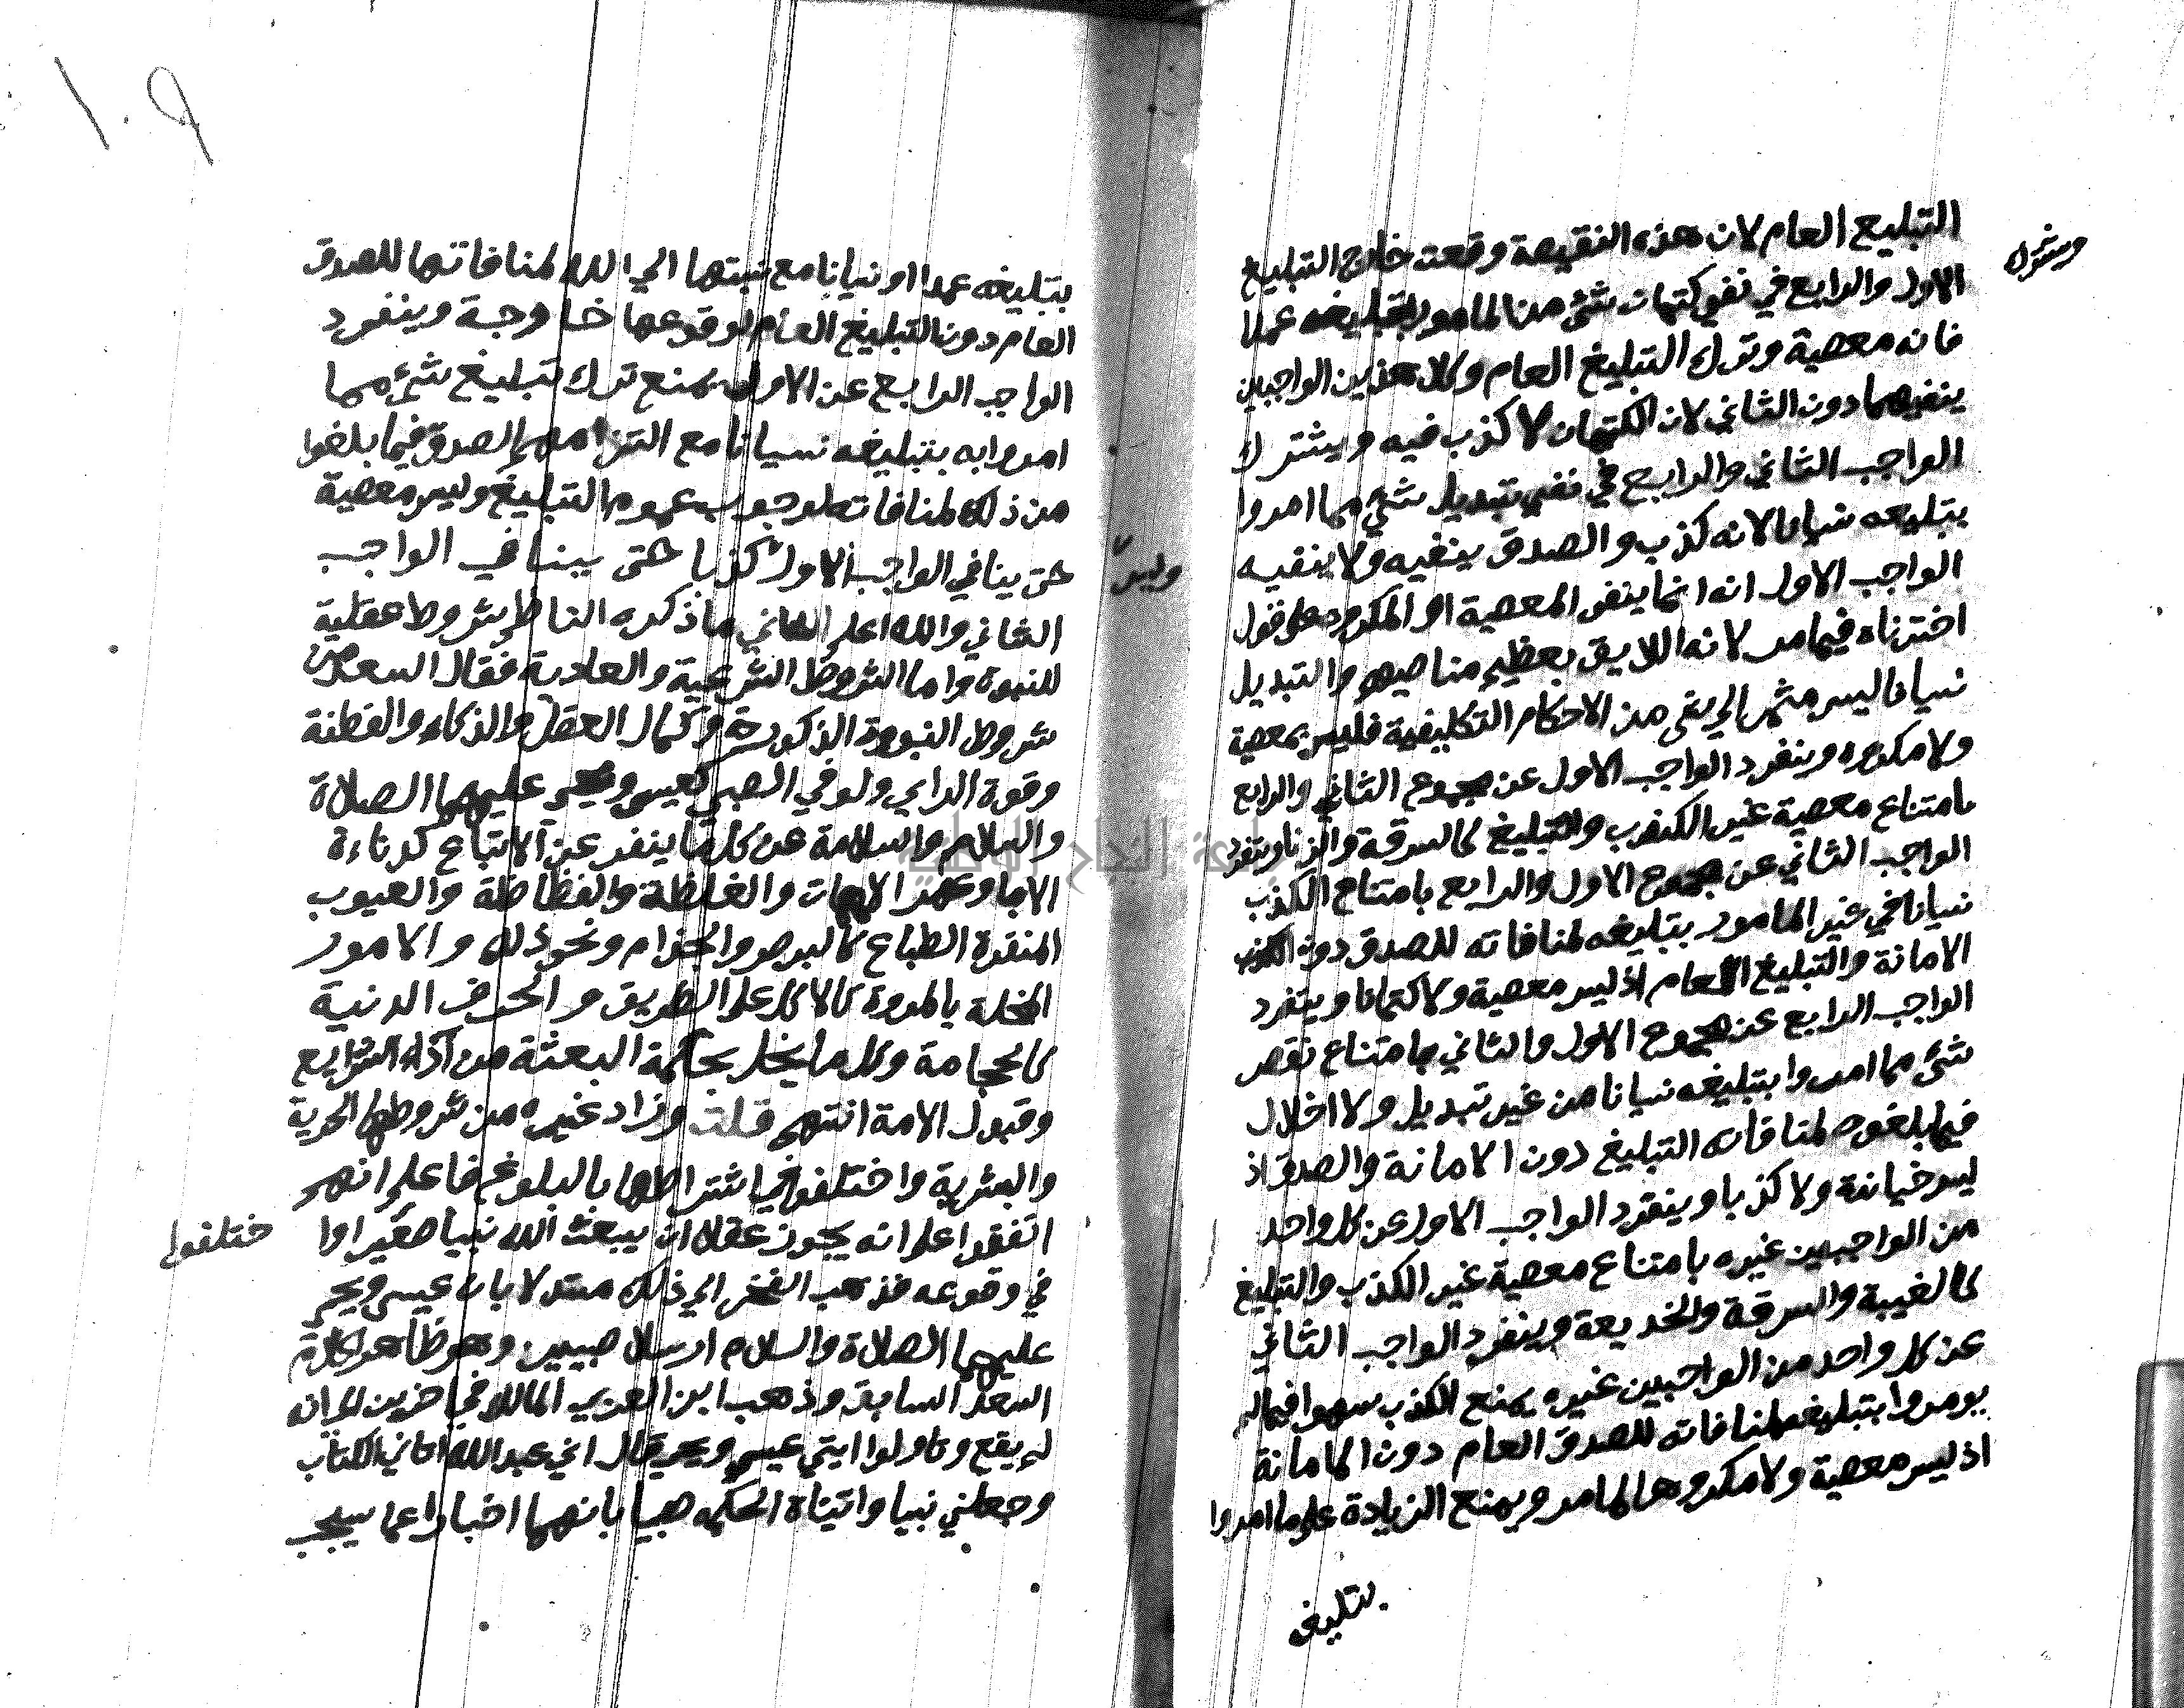 التبليع العام لان هذه النقيصة وقعت خارج التبليغ
ويشترك
الاول والرابع في نفي كتمان شئ من المامور بتبليغه عمدا
فانه معصية وترك التبليغ العام وكلا هذين الواجبين
ينفيهما دون الثاني لان الكتمان لا كذب فيه ويشترك
الواجب الثاني والرابع في نفي تبديل شئ مما امروا
بتليعه نسيانا لانه كذب والصدق ينفيه ولا ينفيه
الواجب الاول انه انما ينفي المعصية او المكروه على قول
اخترناه فيما مر لانه اللايق بعظيم مناصبهم والتبديل
نسيانا ليس مثمر الي شي من الاحكام التكليفية فليس بمعصية
ولا مكروه وينفرد الواجب الاول عن مجموع الثاني والرابع
بامتناع معصية غير الكذب والتبليغ كالسرقة والزنا وينفرد
الواجب الثاني عن مجموع الاول والرابع بامتناع الكذب
نسيانا في غير المامور بتبليغه لمنافاته للصدق دون
الامانة والتبليغ العام اذ ليس معصية ولا كتمانا وينفرد
الواجب الرابع عن مجموع الاول والثاني بامتناع نقص
شئ مما امروا بتبليغه نسيانا من غير تبديل ولا اخلال
فيما بلغوه لمنافاته التبليغ دون الامانة والصدق اذ
ليس خيانة ولا كذبا وينفرد الواجب الاول عن كل واحد
من الواجبين غيره بامتناع معصية غير الكذب والتبليغ
كالغيبة والسرقة والخديعة وينفرد الواجب الثاني
عن كل واحد من الواجبين غيره بمنع الكذب سهوا فيما لم
يومروا بتبليغه لمنافاته للصدق العام دون الامانة
اذ ليس معصية ولا مكروها لما مر ويمنع الزيادة على ما امروا
بتبليغه
١٠٩
بتبليغه عمدا او نسيانا مع نسبتها الي الله لمنافاتها للصدق
العام دون التبليغ العام لوقوعها خارجة وينفرد
الواجب الرابع عن الاول بمنع ترك تبليغ شئ مما
امروا به بتبليغه نسيانا مع التزامهم الصدق فيما بلغوا
من ذلك لمنافاته لوجوب عموم التبليغ وليس معصية
حتى ينافي الواجب الاول كذبا حتى ينافي الواجب
وليس
الثاني والله اعلم الثاني ما ذكره الناظم شروط عقلية
للنبوة واما الشروط الشرعية والعادية فقال السعد من
شروط النبوة الذكورة وكمال العقل والذكاء والفطنة
وقوة الراي ولو في الصبي كعيسى ويحيي عليهما الصلاة
والسلام والسلامة عن كل ما ينفر عن الاتباع كدناءة
الابا وعهر الامهات والغلظة والفظاظة والعيوب
المنفرة الطباع كالبرص والجذام ونحو ذلك والامور
المخلة بالمروة كالاكل على الطريق والحرف الدنية
كالحجامة وكل ما يخل بحكمة البعثة من اداء الشرايع
وقبول الامة انتهى قلت وزاد غيره من شروطها الحرية
والبشرية واختلفوا في اشتراطها بالبلوغ فاعلم انهم
اتفقوا على انه يجوز عقلا ان يبعث الله نبيا صغيرا وا
ختلفوا
في وقوعه فذهب الفخر الي ذلك مستدلا بان عيسى ويحيى
عليهما الصلاة والسلام ارسلا صبيين وهو ظاهر كلام
السعد السابق وذهب ابن العربي المالكي في اخرين الي انه
لم يقع وتاولوا ايتي عيسى ويحيى قال اني عبد الله اتاني الكتاب
وجعلني نبيا واتيناه الحكم صبيا بانهما اخبارا عما سيجب